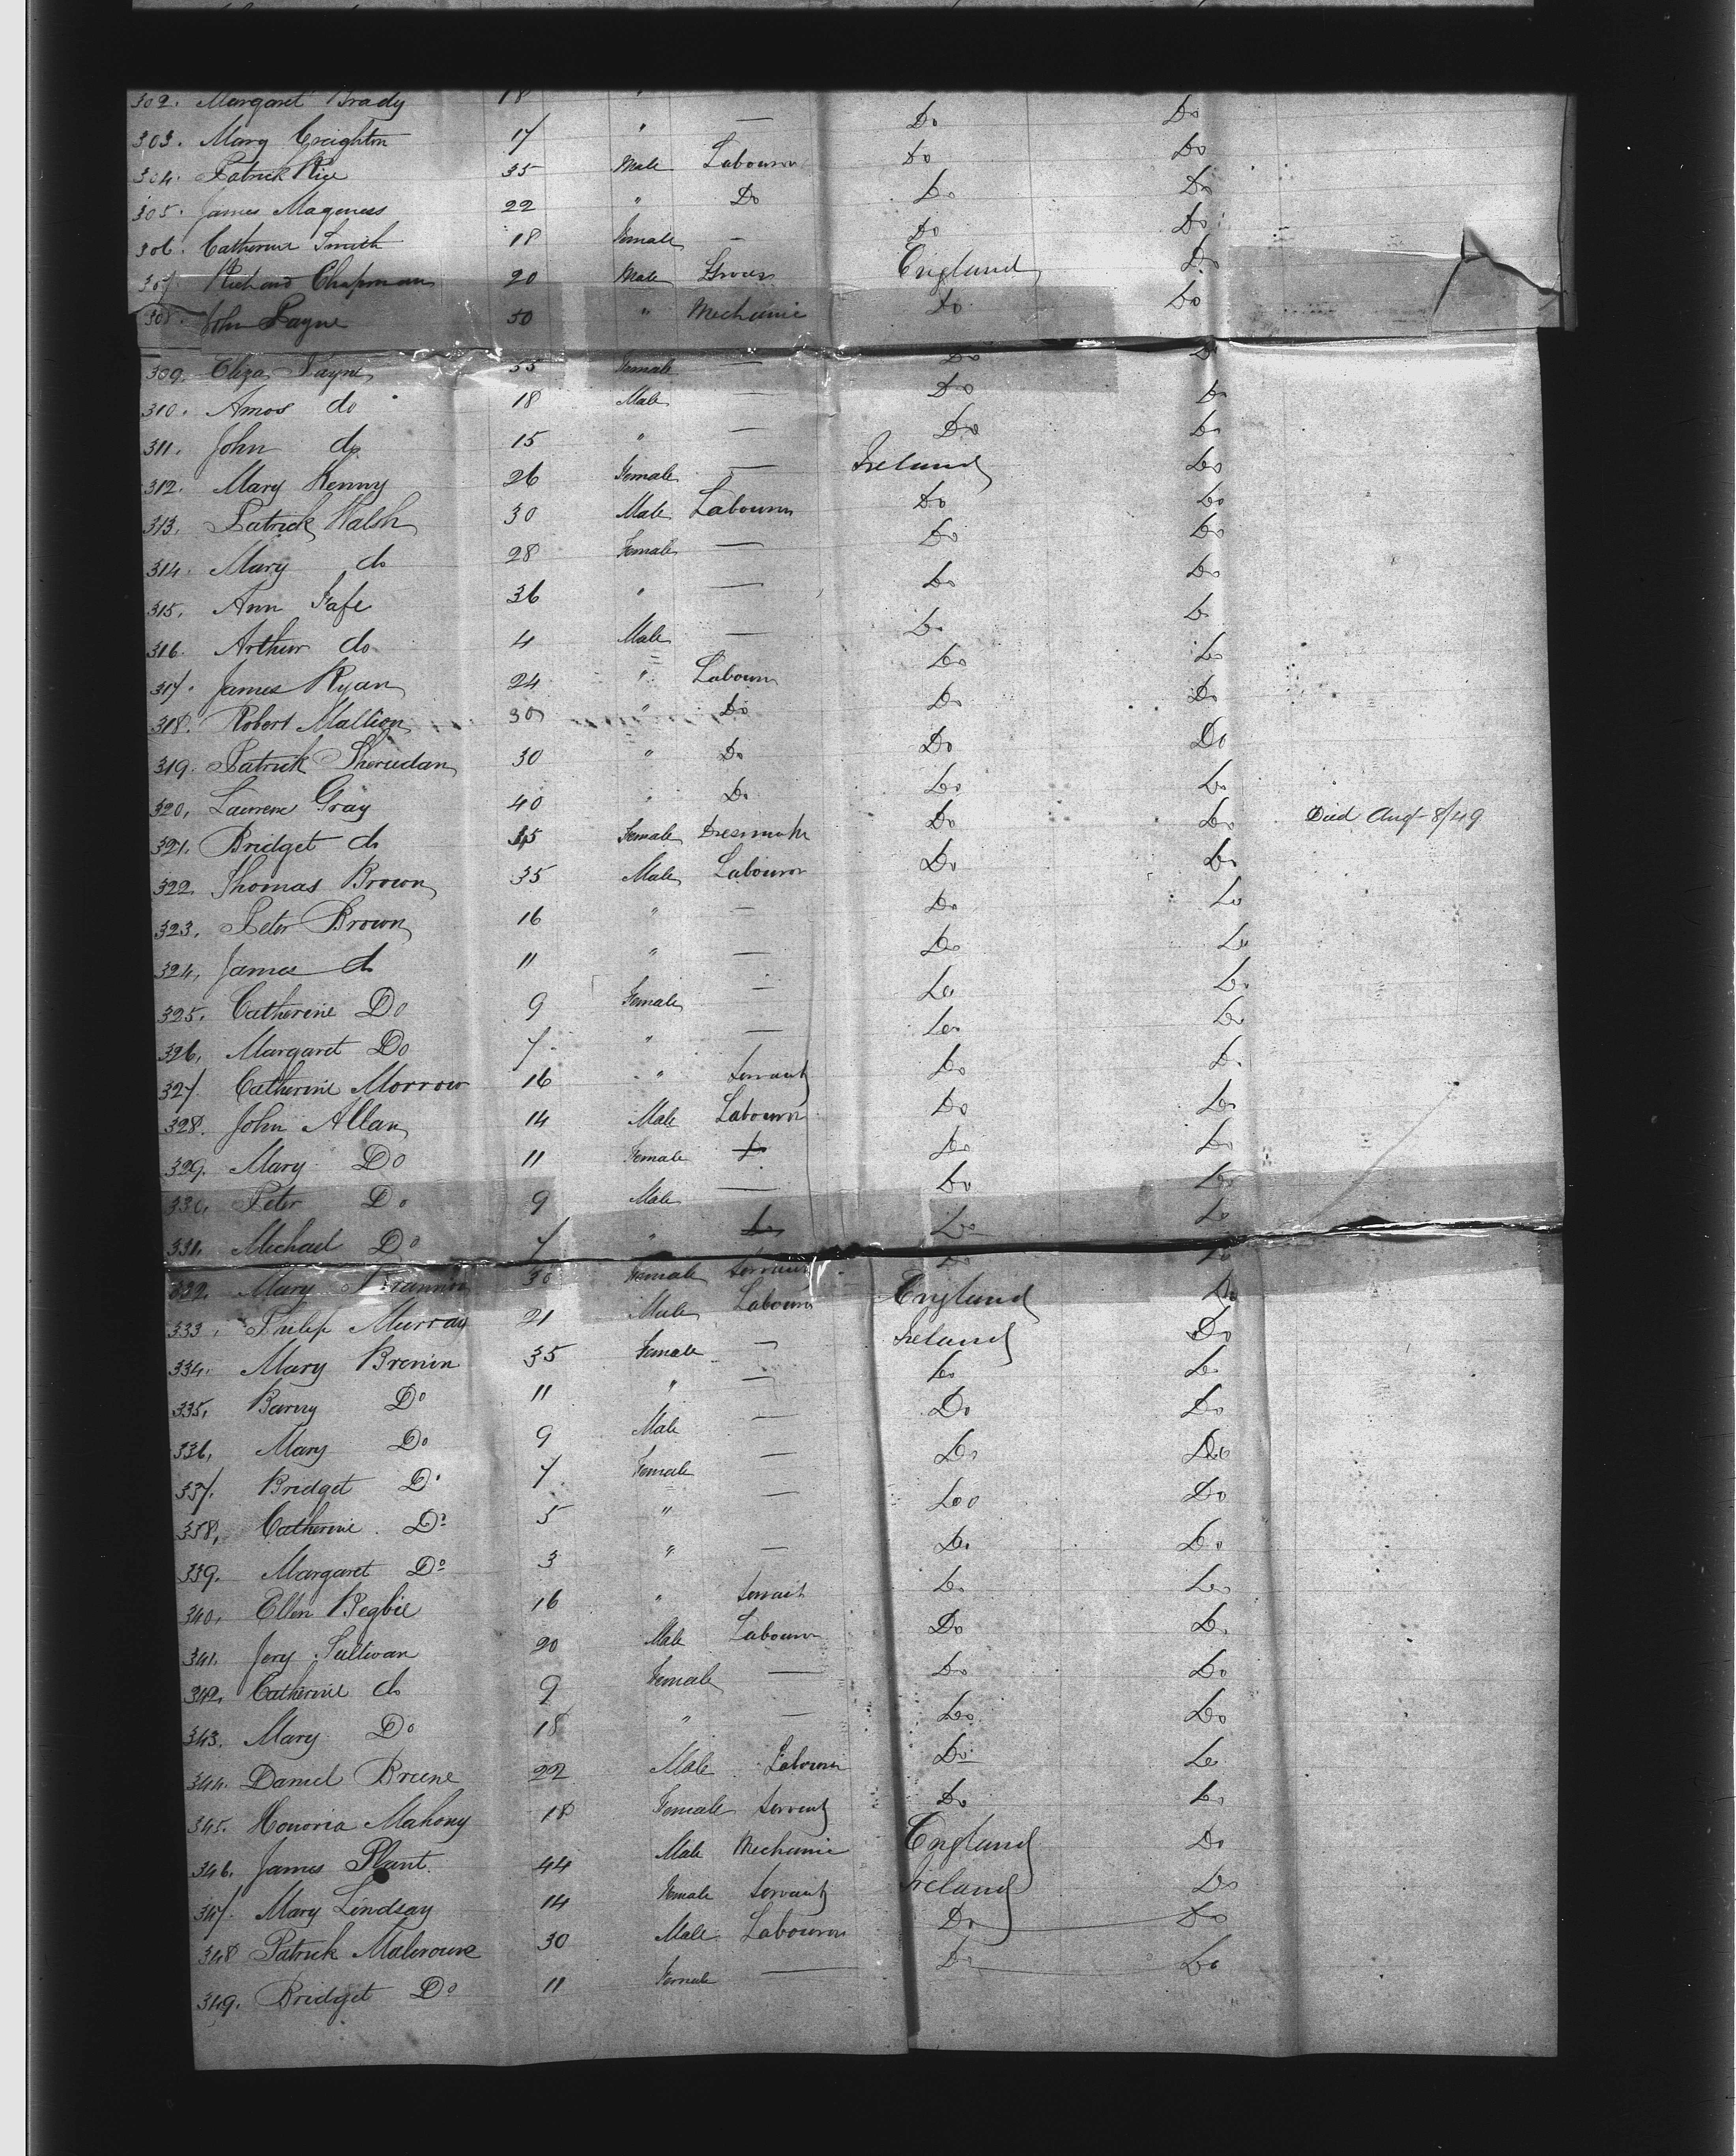 302. Margaret Brady 18 "
303. Mary Creighton 17 " — Do Do
304. Patrick Rice 35 Male Labourer Do Do
305. James Magness 22 " Do Do Do
306. Catherine Smith 18 Female — Do Do
307. Richard Chapman 20 Male Grocer England Do
308. John Payne 50 " Mechanic Do Do
309. Eliza Payne 55 Female — Do Do
310. Amos do 18 Male — Do Do
311. John do 15 " — Do Do
312. Mary Kenny 26 Female — Ireland Do
313. Patrick Walsh 30 Male Labourer Do Do
314. Mary do 28 Female — Do Do
315. Ann 36 " — Do Do
316. Arthur do 4 Male — Do Do
317. James Ryan 24 " Labourer Do Do
318. Robert Mallion 30 " Do Do Do
319. Patrick Sheridan 30 " Do Do Do
320. Lawrence Gray 40 " Do Do Do
321. Bridget do 35 Female Dresmaker Do Do Died Aug 8/49
322. Thomas Brown 35 Male Labourer Do Do
323. Peter Brown 16 " — Do Do
324. James do 11 " — Do Do
325. Catherine Do 9 Female — Do Do
326. Margaret Do 7 " — Do Do
327. Catherine Morrow 16 " Servant Do Do
328. John Allan 14 Male Labourer Do Do
329. Mary Do 11 Female Do Do
330. Peter Do 9 Male — Do Do
331. Michael Do 7 " Do Do Do
332. Mary 30 Female Servant Do Do
333. Philip Murray 21 Male Labourer England Do
334. Mary Brenin 35 Female — Ireland Do
335. Barny Do 11 " — Do Do
336. Mary Do 9 Male — Do Do
337. Bridget Do 7 Female — Do Do
338. Catherine Do 5 " — Do Do
339. Margaret Do 3 " — Do Do
340. Ellen Begbie 16 " Servant Do Do
341. Jery Sullivan 20 Male Labourer Do Do
342. Catherine do 9 Female — Do Do
343. Mary Do 18 " — Do Do
344. Daniel Breene 22 Male Labourer Do Do
345. Honoria Mahony 18 Female Servant Do Do
346. James Plant. 44 Male Mechanic England Do
347. Mary Lindsay 14 Female Servant Ireland Do
348 Patrick Mulvroune 30 Male Labourer Do Do
349. Bridget Do 11 Female — Do Do